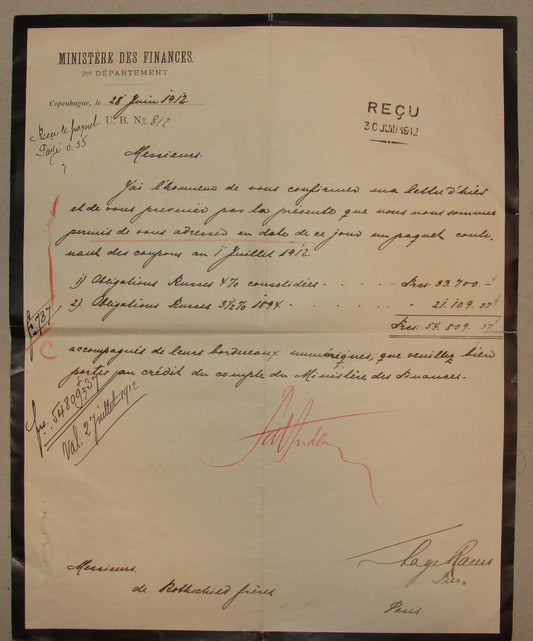 MINISTÈRE DES FINANCES.
2ME DÉPARTEMENT.
Copenhague, le 28 Juin 1912
U. B. No 812
REÇU
30 JUIN 1912
Reçu le paquet
Payé 0.35
Messieurs.
J'ai l'honneur de vous confirmer ma lettre d'hier
et de vous prévenir par la présente que nous nous sommes
permis de vous adresser en date de ce jour un paquet conte-
nant des coupons au 1' Juillet 1912.
1) Obligations Russes 4% consolidées - - - - Frs: 33 700.-
2) Obligations Russes 3½% 1894. - - - - " 21.109.37
Frs: 54.809.37
737
C
accompagnés de leurs bordereaux numériques, que veuillez bien
porter au crédit du compte du Ministère des Finances.
frs. 54809.37
Val. 2 juillet 1912
Messieurs
de Rothschild frères
Paris